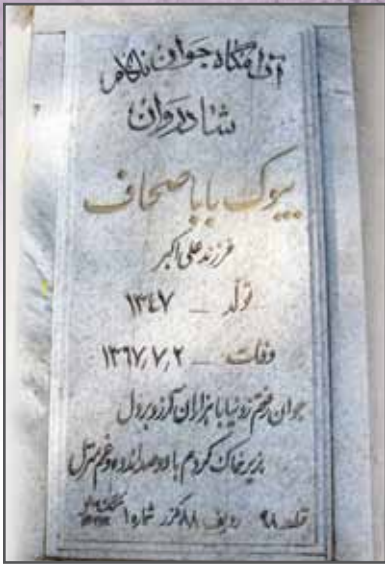 آرامگاه جوان ناکام
شادروان
بیوک بابا صحاف
فرزند علی اکبر
تولد ــ ۱۳۴۷
وفات ــ ۱۳۶۷٫۷٫۲
جوان رفتم ز دنیا با هزاران آرزو بر دل
بزیر خاک کردم با دو صد اندوه و غم منزل
قطعه ۹۸ ردیف ۸۸ گزر شماره ۱